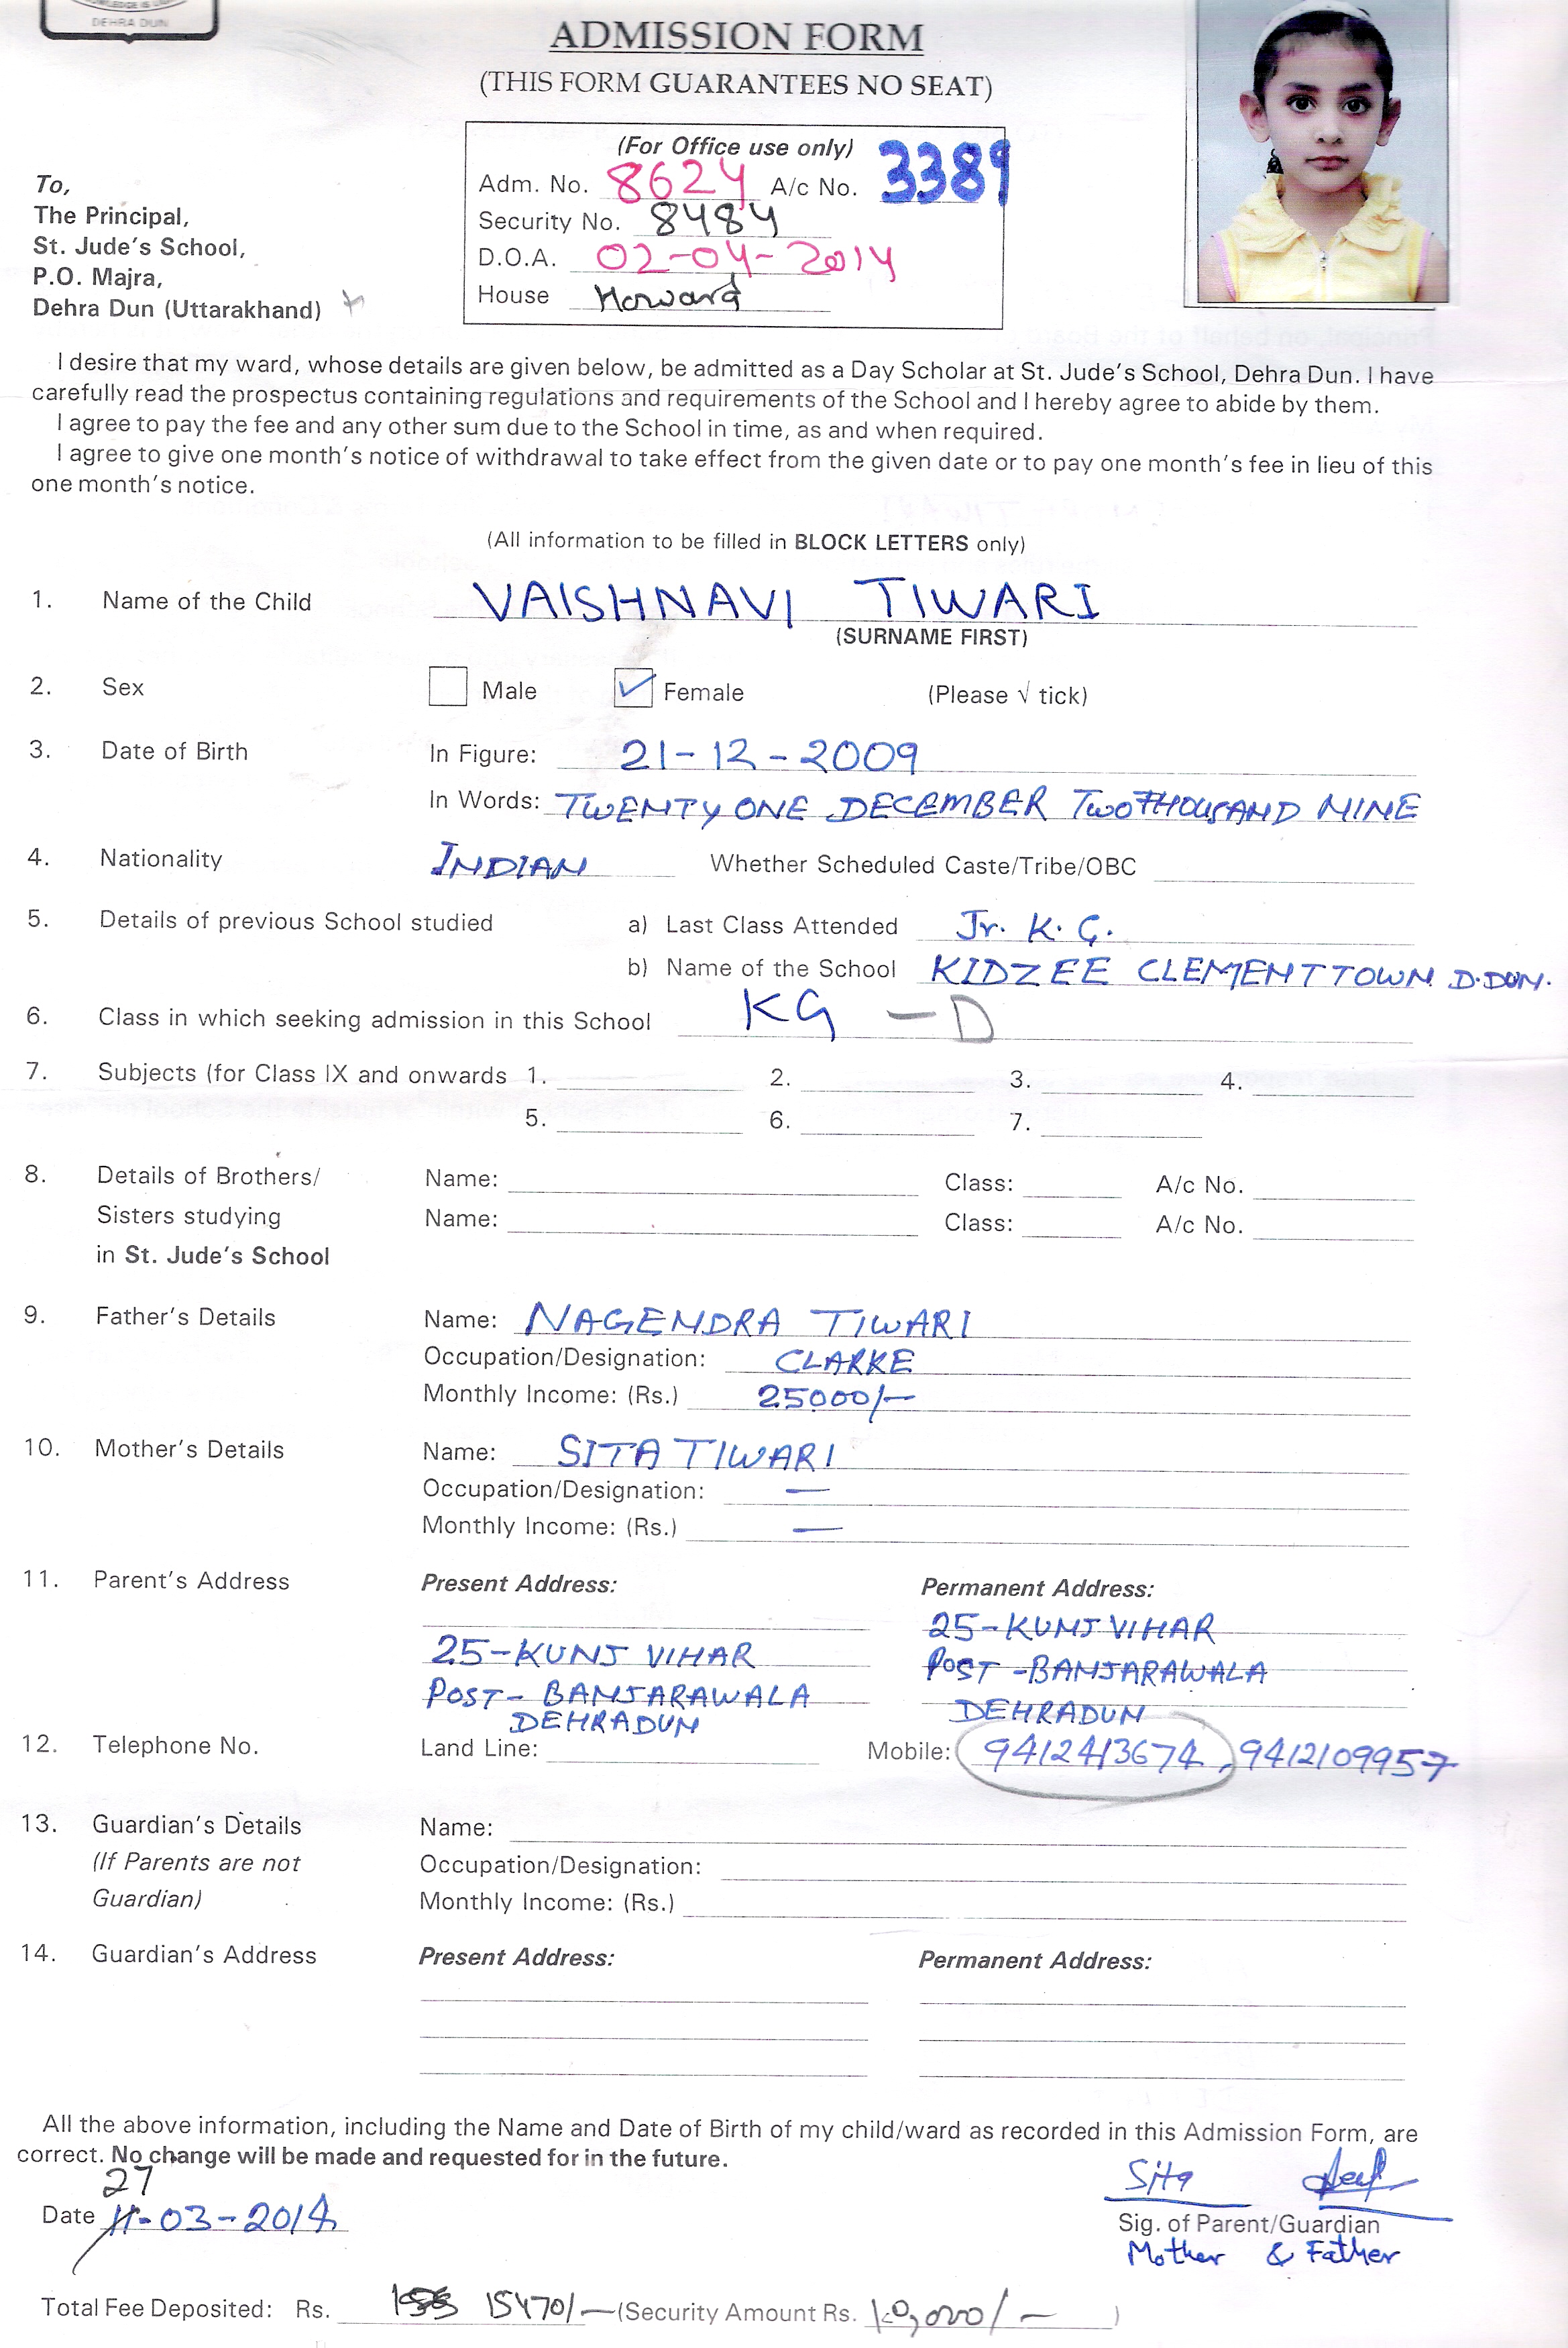 DEHRA DUN
ADMISSION FORM
(THIS FORM GUARANTEES NO SEAT)
(For Office use only)
Adm. No. 8624 A/c No. 3389
Security No. 8484
D.O.A. 02-04-2014
House Howard
To,
The Principal,
St. Jude's School,
P.O. Majra,
Dehra Dun (Uttarakhand)
I desire that my ward, whose details are given below, be admitted as a Day Scholar at St. Jude's School, Dehra Dun. I have
carefully read the prospectus containing regulations and requirements of the School and I hereby agree to abide by them.
I agree to pay the fee and any other sum due to the School in time, as and when required.
I agree to give one month's notice of withdrawal to take effect from the given date or to pay one month's fee in lieu of this
one month's notice.
(All information to be filled in BLOCK LETTERS only)
1. Name of the Child VAISHNAVI TIWARI
(SURNAME FIRST)
2. Sex Male Female (Please √ tick)
3. Date of Birth In Figure: 21-12-2009
In Words: TWENTY ONE DECEMBER TWO THOUSAND NINE
4. Nationality INDIAN Whether Scheduled Caste/Tribe/OBC
5. Details of previous School studied a) Last Class Attended Jr. K. G.
b) Name of the School KIDZEE CLEMENT TOWN D.DUN.
6. Class in which seeking admission in this School KG - D
7. Subjects (for Class IX and onwards 1. 2. 3. 4.
5. 6. 7.
8. Details of Brothers/ Name: Class: A/c No.
Sisters studying Name: Class: A/c No.
in St. Jude's School
9. Father's Details Name: NAGENDRA TIWARI
Occupation/Designation: CLARKE
Monthly Income: (Rs.) 25000/-
10. Mother's Details Name: SITA TIWARI
Occupation/Designation: —
Monthly Income: (Rs.) —
11. Parent's Address Present Address: Permanent Address:
25-KUNJ VIHAR 25-KUNJ VIHAR
POST- BANJARAWALA POST -BANJARAWALA
DEHRADUN DEHRADUN
12. Telephone No. Land Line: Mobile: 9412413674, 9412109957
13. Guardian's Details Name:
(If Parents are not Occupation/Designation:
Guardian) Monthly Income: (Rs.)
14. Guardian's Address Present Address: Permanent Address:
All the above information, including the Name and Date of Birth of my child/ward as recorded in this Admission Form, are
correct. No change will be made and requested for in the future.
27
Date 11-03-2014
Sita
Sig. of Parent/Guardian
Mother & Father
Total Fee Deposited: Rs. 15470/- (Security Amount Rs. 10,000/- )